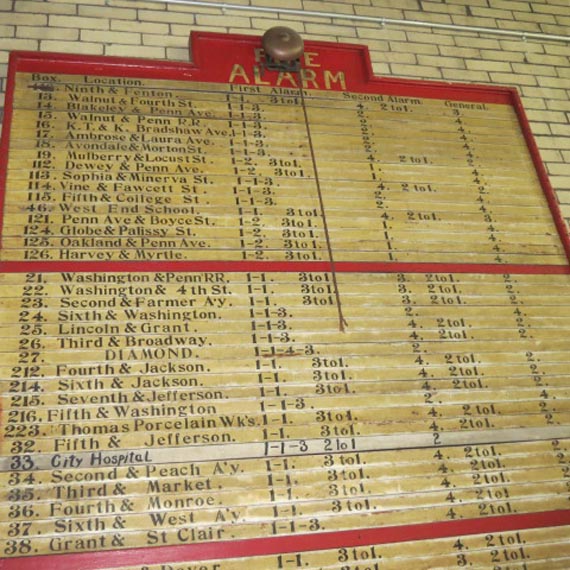 FIRE
ALARM
Box. Location. First Alarm. Second Alarm. General.
Ninth & Fenton. 1-1. 3 to 1. 4. 2 to 1. 3.
13. Walnut & Fourth St. 1-1-3.
14. Blakeley & Penn Ave. 1-1-3.
15. Walnut & Penn R.R. 1-1-3.
16. K.T. & K. Bradshaw Ave. 1-1-3.
17. Ambrose & Laura Ave. 1-1-3.
18. Avondale & Morton St. 1-1-3.
19. Mulberry & Locust St. 1-1. 3 to 1. 4. 2 to 1.
112. Dewey & Penn Ave. 1-2. 3 to 1. 1.
113. Sophia & Minerva St. 1-2. 3 to 1. 1.
114. Vine & Fawcett St. 1-1-3. 4. 2 to 1. 2.
115. Fifth & College St. 1-1-3. 2. 4.
46. West End School. 1-1. 3 to 1. 2. 4.
121. Penn Ave & Boyce St. 1-1. 3 to 1. 4. 2 to 1. 3.
124. Globe & Palissy St. 1-2. 3 to 1. 1. 4.
125. Oakland & Penn Ave. 1-2. 3 to 1. 1. 4.
126. Harvey & Myrtle. 1-2. 3 to 1. 1. 4.
21. Washington & Penn RR. 1-1. 3 to 1. 3. 2 to 1. 2.
22. Washington & 4th St. 1-1. 3 to 1. 3. 2 to 1. 2.
23. Second & Farmer A'y. 1-1. 3 to 1. 3. 2 to 1. 2.
24. Sixth & Washington. 1-1-3. 2. 4.
25. Lincoln & Grant. 1-1-3. 2. 4.
26. Third & Broadway. 1-1-3. 4. 2 to 1. 2.
27. DIAMOND. 1-1-4-3. 2.
212. Fourth & Jackson. 1-1. 3 to 1. 4. 2 to 1. 2.
214. Sixth & Jackson. 1-1. 3 to 1. 4. 2 to 1. 2.
215. Seventh & Jefferson. 1-1. 3 to 1. 4. 2 to 1. 2.
216. Fifth & Washington 1-1-3. 2. 4.
223. Thomas Porcelain Wk's. 1-1. 3 to 1. 4. 2 to 1. 2.
32. Fifth & Jefferson. 1-1. 3 to 1. 4. 2 to 1. 2.
33. City Hospital 1-1-3 2 to 1 2
34. Second & Peach A'y. 1-1. 3 to 1. 4. 2 to 1. 2.
35. Third & Market. 1-1. 3 to 1. 4. 2 to 1. 2.
36. Fourth & Monroe. 1-1. 3 to 1. 4. 2 to 1. 2.
37. Sixth & West A'y. 1-1. 3 to 1. 4. 2 to 1. 2.
38. Grant & St Clair. 1-1-3. 4. 2 to 1. 2.
1-1. 3 to 1. 4. 2 to 1. 2.